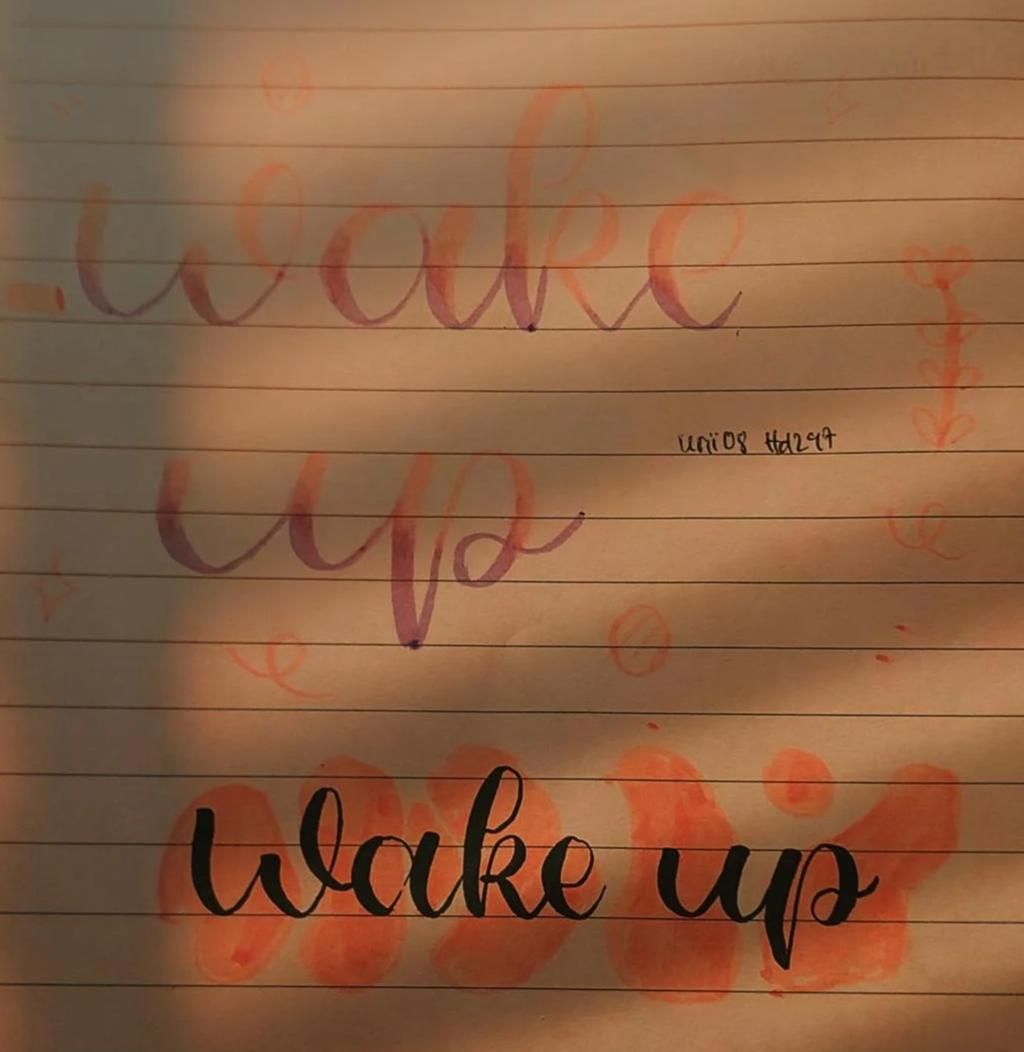 wake
uni08 Hd297
up
Wake up